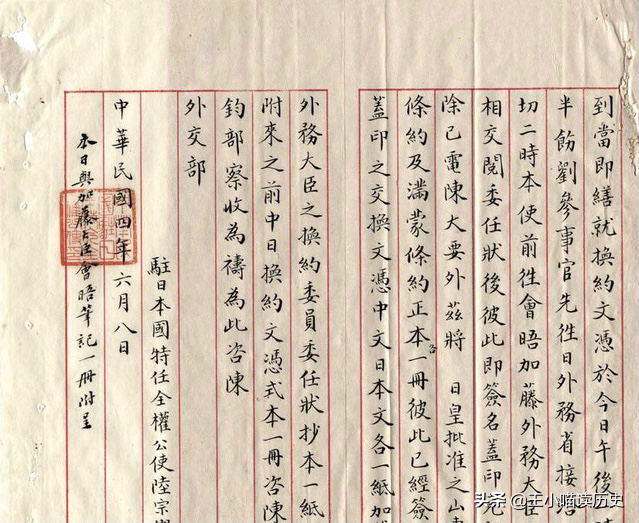 到當即繕就換約文憑於今日午後
半飭劉參事官先徃日外務省接洽
切二時本使前徃會晤加藤外務大臣
相交閱委任狀後彼此即簽名蓋印
除已電陳大要外茲將 日皇批准之山
條約及滿蒙條約正本各一冊彼此已經簽
蓋印之交換文憑中文日本文各一紙加
外務大臣之換約委員委任狀抄本一紙
附來之前中日換約文憑式本一冊咨陳
鈞部察收為禱為此咨陳
外交部
駐日本國特任全權公使陸宗
中華民國四年六月八日
本日與加藤大臣會晤筆記一冊附呈
头条 @王小喵读历史